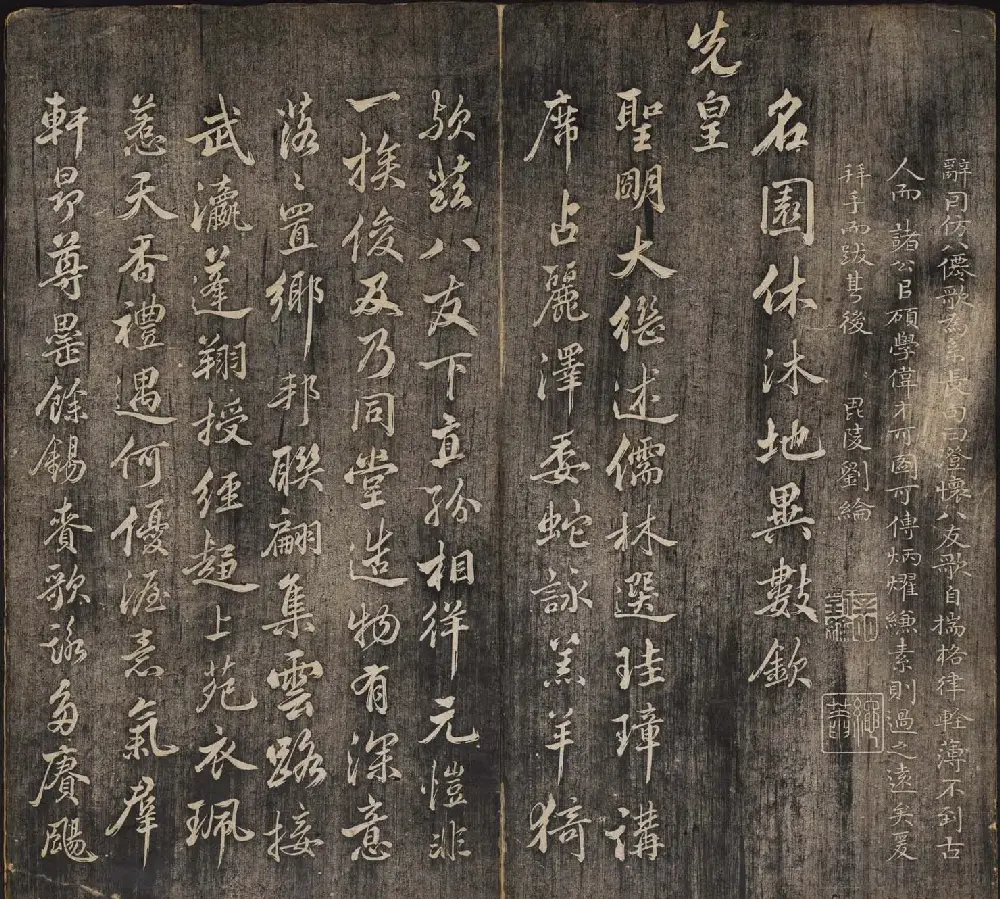 辭因仿八僊歌為系長句曰澄懷八友歌自揣格律輕薄不到古
人而諸公自碩學偉才可圖可傳炳燿縑素則過之遠矣爰
拜手而跋其後 毘陵劉綸
名園休沐地異數欽
先皇
聖明大繼述儒林選珪璋講
席占麗澤委蛇詠羔羊猗
歟此八友下直紛相徉元愷非
一族俊及乃同堂造物有深意
落〻置鄉邦聯翩集雲路接
武瀛蓬翔授經趨上苑衣珮
惹天香禮遇何優渥意氣羣
軒昂尊罍餘錫賚歌詠多賡颺